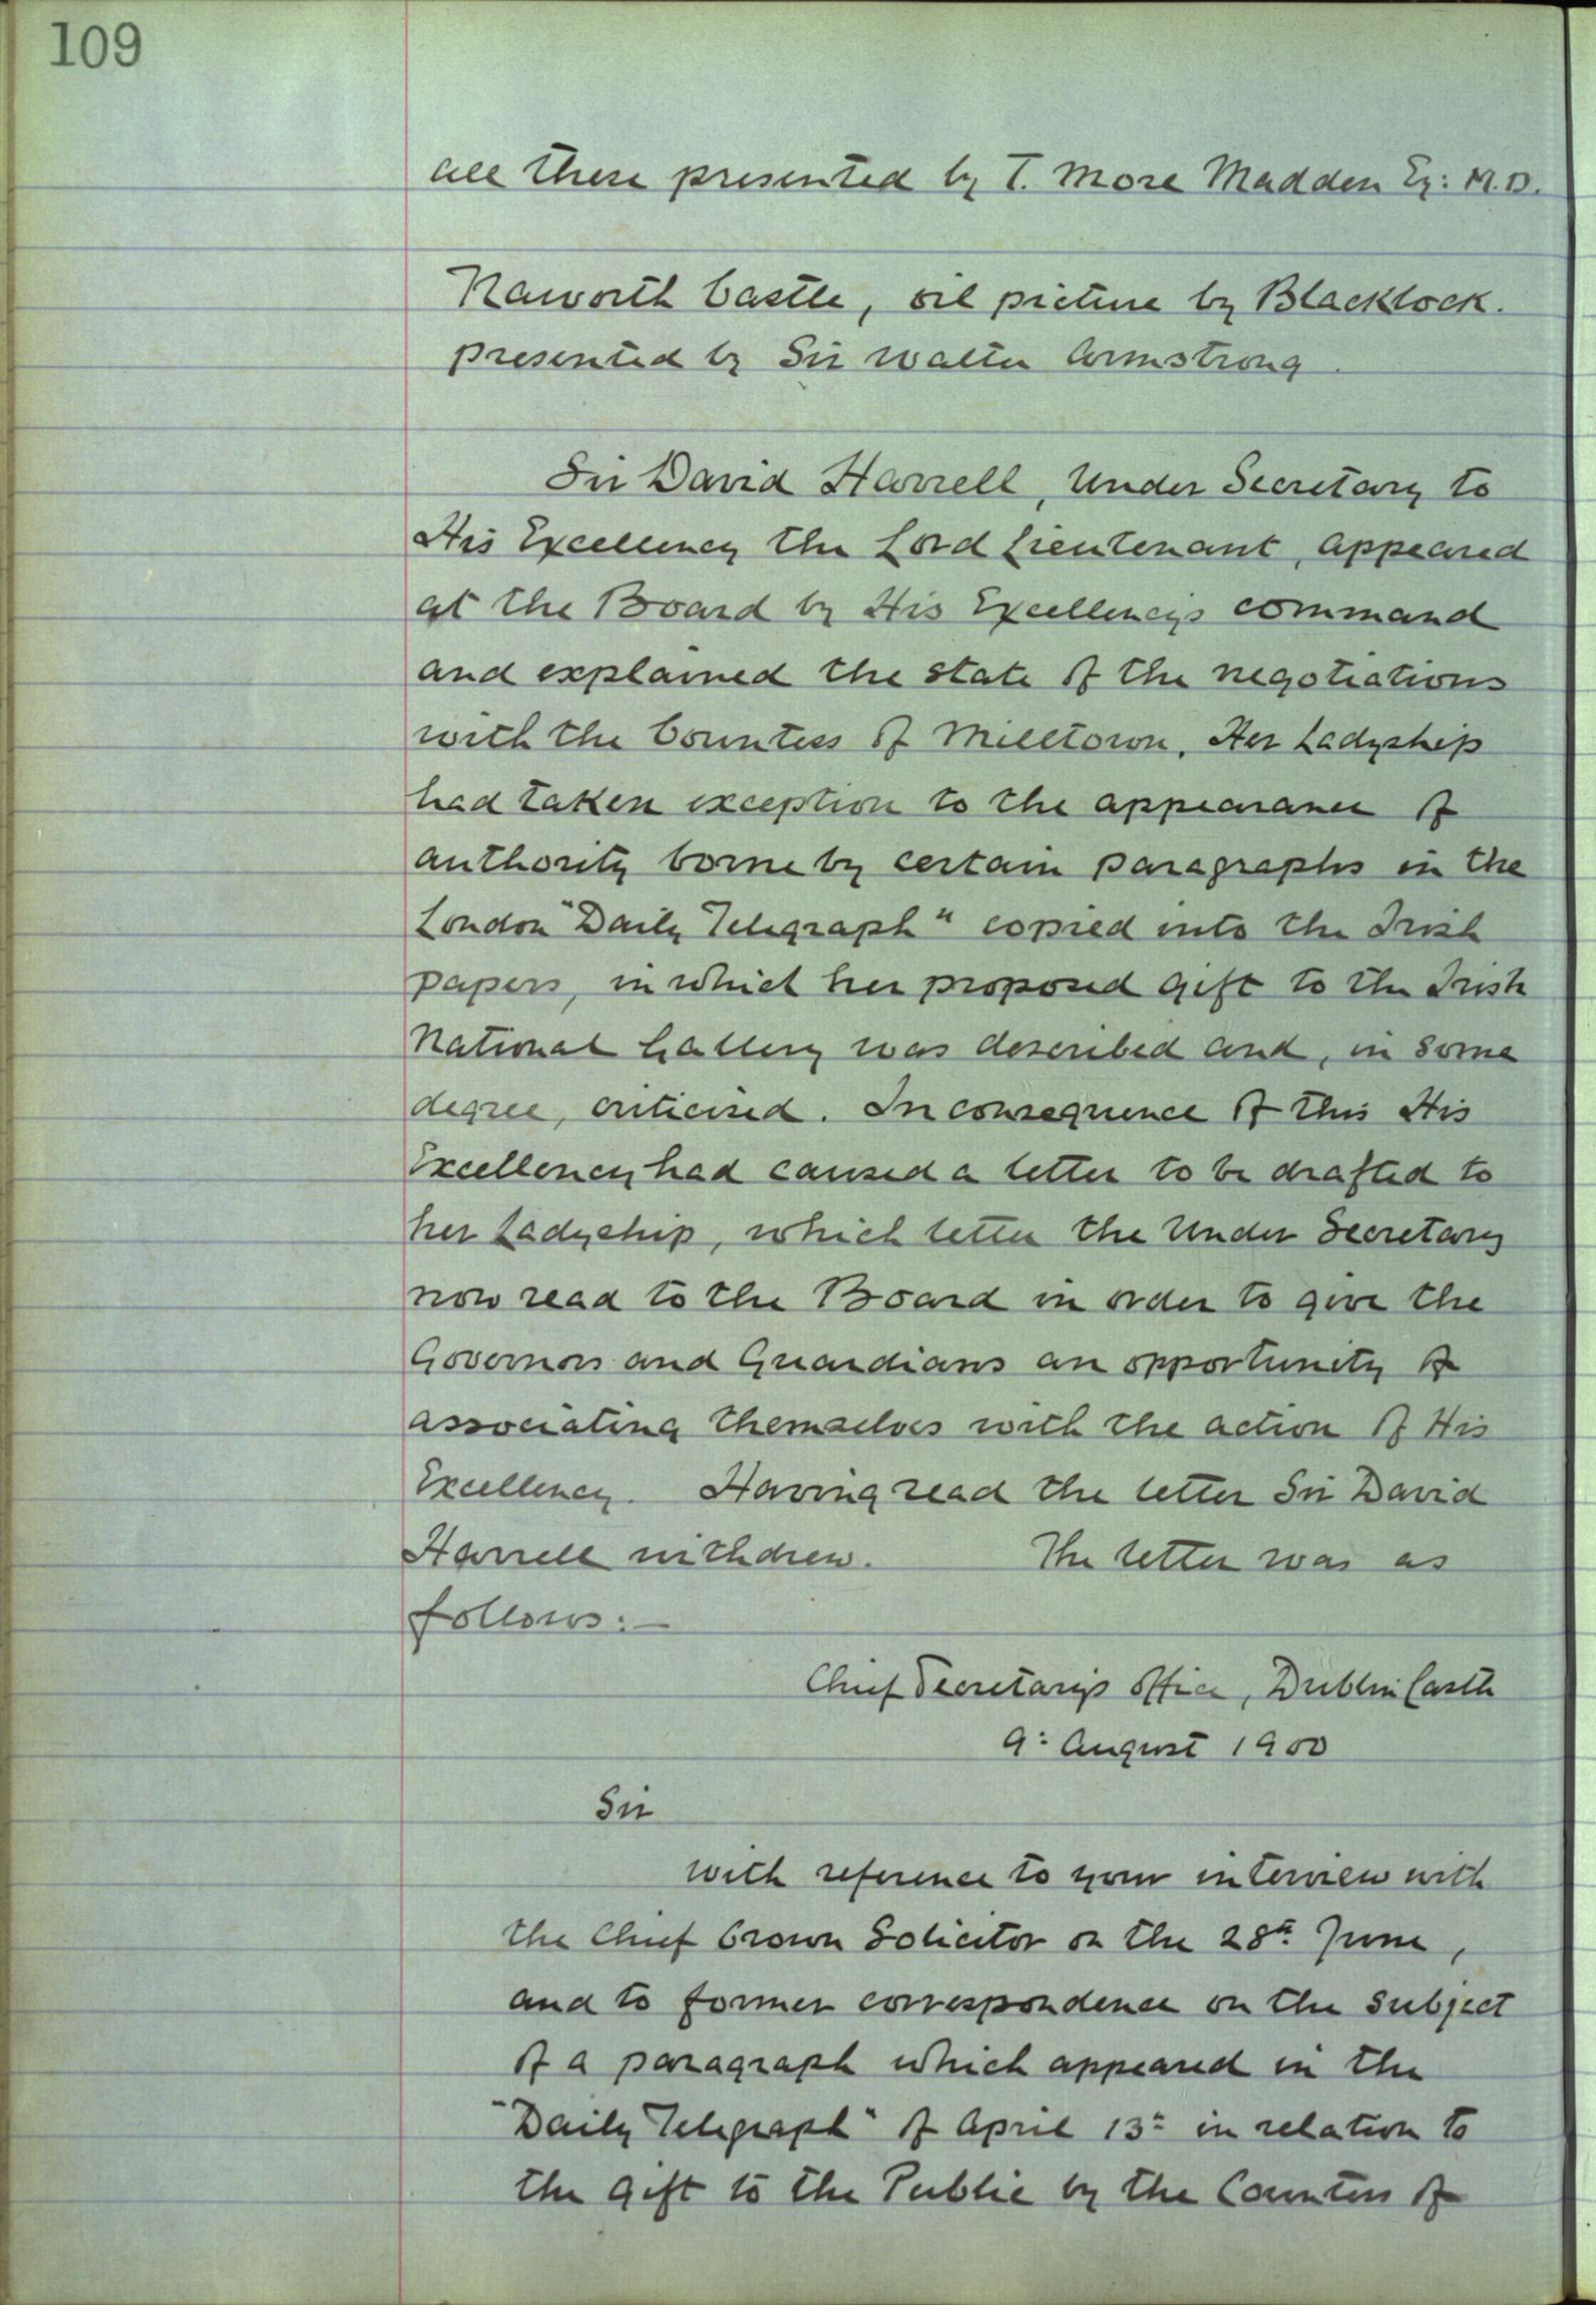 109
all these presented by T. More Madden Esq: M.D.
Naworth Castle, oil picture by Blacklock.
presented by Sir Walter Armstrong.
Sir David Harrell, Under Secretary to
His Excellency the Lord Lieutenant, appeared
at the Board by His Excellency's command
and explained the state of the negotiations
with the Countess of Milltown. Her Ladyship
had taken exception to the appearance of
authority borne by certain paragraphs in the
London "Daily Telegraph" copied into the Irish
papers, in which her proposed gift to the Irish
National Gallery was described and, in some
degree, criticised. In consequence of this His
Excellency had caused a letter to be drafted to
her Ladyship, which letter the Under Secretary
now read to the Board in order to give the
Governors and Guardians an opportunity of
associating themselves with the action of His
Excellency. Having read the letter Sir David
Harrell withdrew. The letter was as
follows:—
Chief Secretary's Office, Dublin Castle
9: August 1900
Sir
With reference to your interview with
the Chief Crown Solicitor on the 28th June,
and to former correspondence on the subject
of a paragraph which appeared in the
"Daily Telegraph" of April 13: in relation to
the gift to the Public by the Countess of